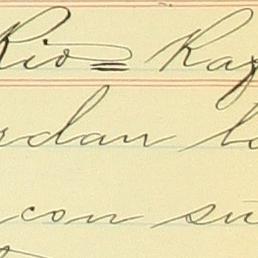 Rio = Ra
rdan b
con su